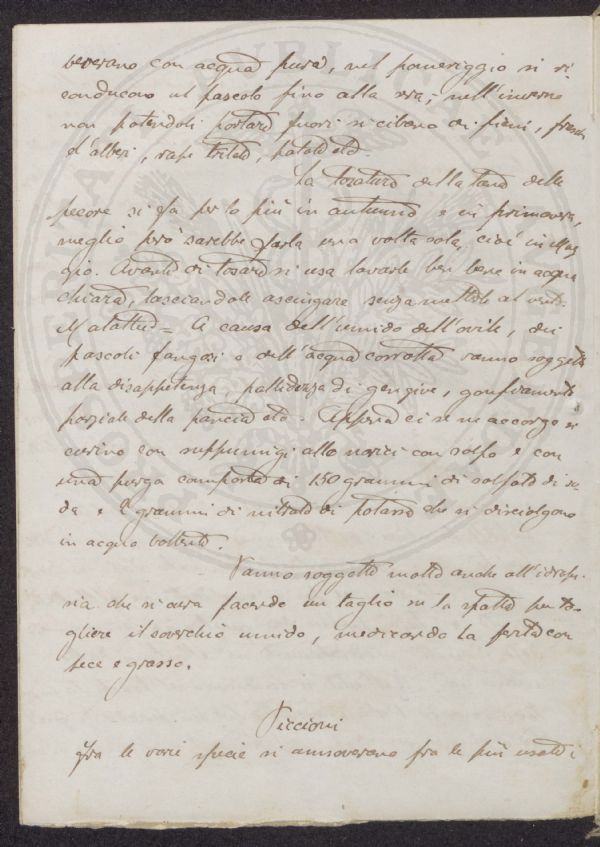 beverano con acqua pura, nel pomeriggio si ri
conducono al pascolo fino alla sera; nell'inverno
non potendoli portare fuori si cibano di fieni,
d'alberi, rape tritate, patate etc.
La tosatura della lana delle
pecore si fa per lo più in autunno e in primavera,
meglio però sarebbe farla una volta sola, cioè in Mag
gio. Avanti di tosare si usa lavarle ben bene in acqua
chiara, lasciandole asciugare senza metterle al vento.
Malattie = A causa dell'umido dell'ovile, dei
pascoli fangosi e dell'acqua corrotta vanno soggette
alla disappetenza, pallidezza di gengive, gonfiamento
parziale della pancia etc. Appena ci se ne accorge si
curino con suffumigi alle narici con solfo e con
una purga composta di 150 grammi di solfato di so-
da e grammi di nitrato di potassa che si disciolgono
in acqua bollente.
Vanno soggette molto anche all'idrope-
sia che si cura facendo un taglio su la spalla per to-
gliere il soverchio umido, medicando la ferita con
pece e grasso.
Piccioni
Fra le varie specie si annoverano fra le più usati i
PUBLICAE